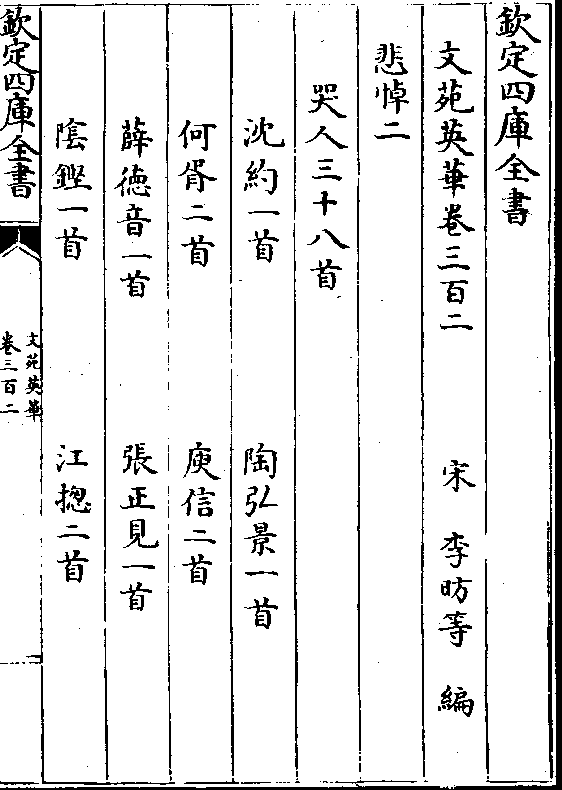 欽定四庫全書
文苑英華卷三百二 宋 李昉等 編
悲悼二
哭人三十八首
沈約一首 陶弘景一首
何胥二首 庾信二首
薛德音一首 張正見一首
陰鏗一首 江揔二首
欽定四庫全書
文苑英華
卷三百二